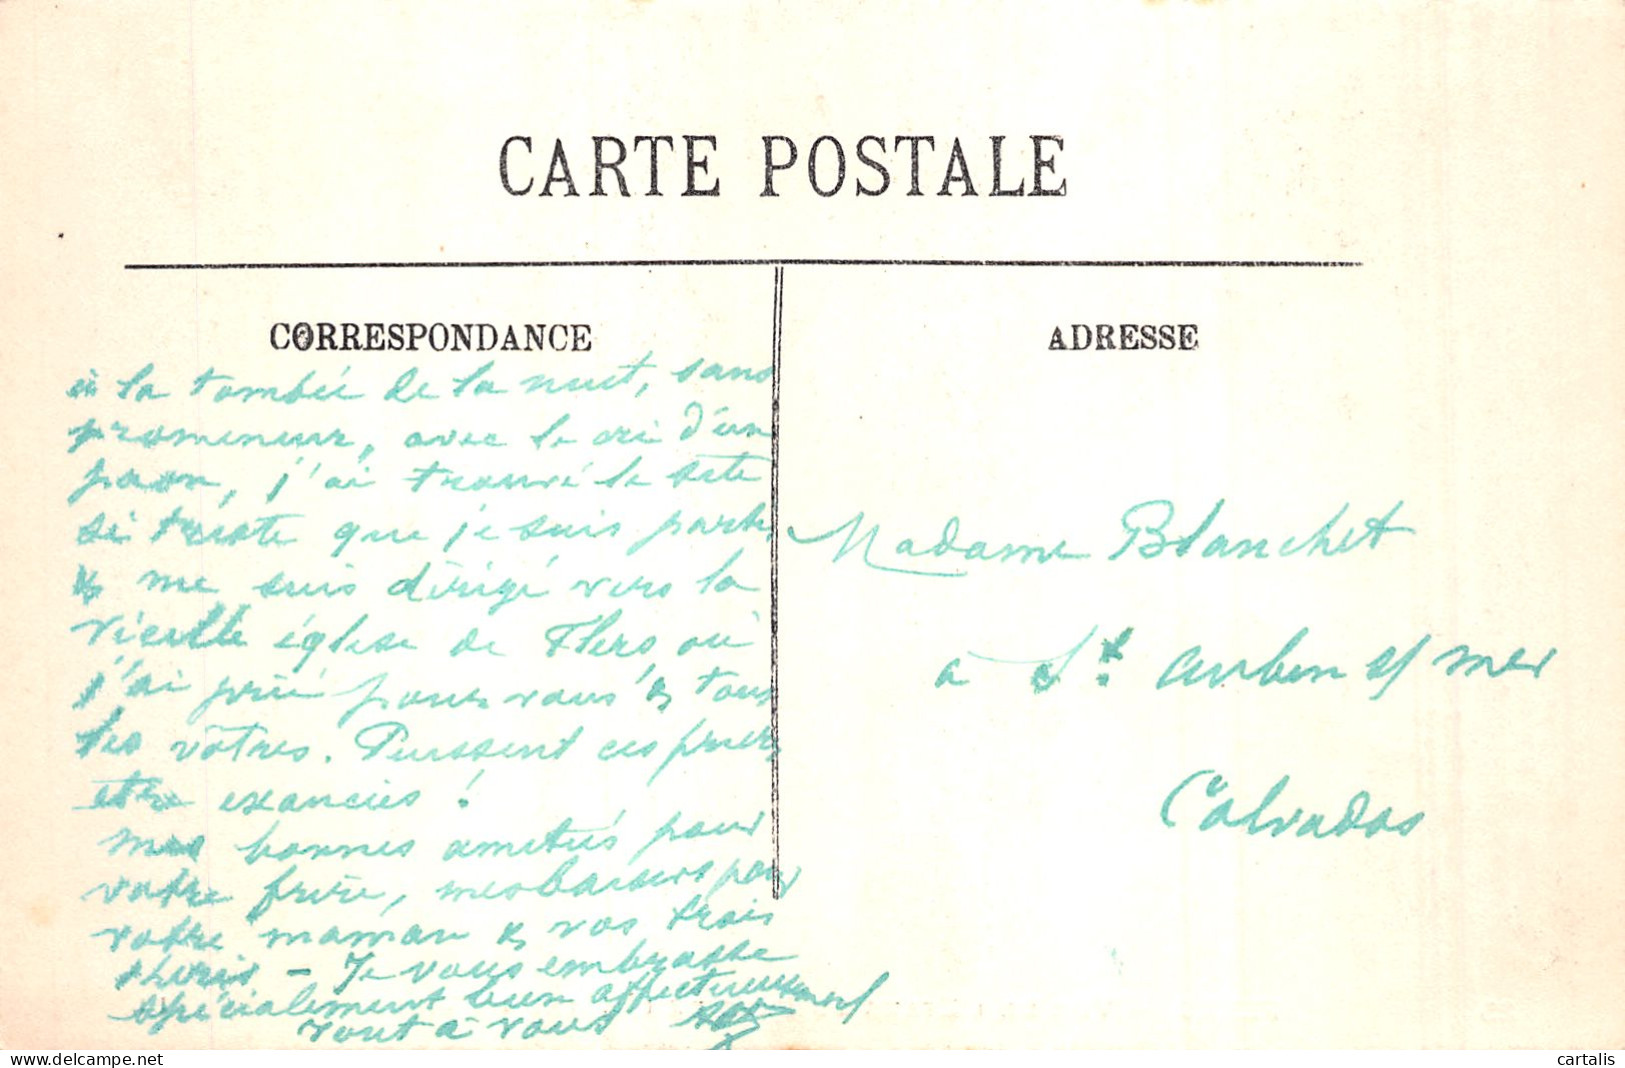 CARTE POSTALE
CORRESPONDANCE
à la tombée de la nuit, sans
promeneur, avec le cri d'un
paon, j'ai trouvé le site
si triste que je suis parti
& me suis dirigé vers la
vieille église de Flers où
j'ai prié pour vous & tous
les vôtres. Puissent ces prières
être exancées !
mes bonnes amitiés pour
votre frère, mes baisers pour
votre maman & vos trois
chéris - Je vous embrasse
spécialement bien affectueusement
Tout à vous
ADRESSE
Madame Blanchet
à St. Aubin s/ mer
Calvados
cartalis